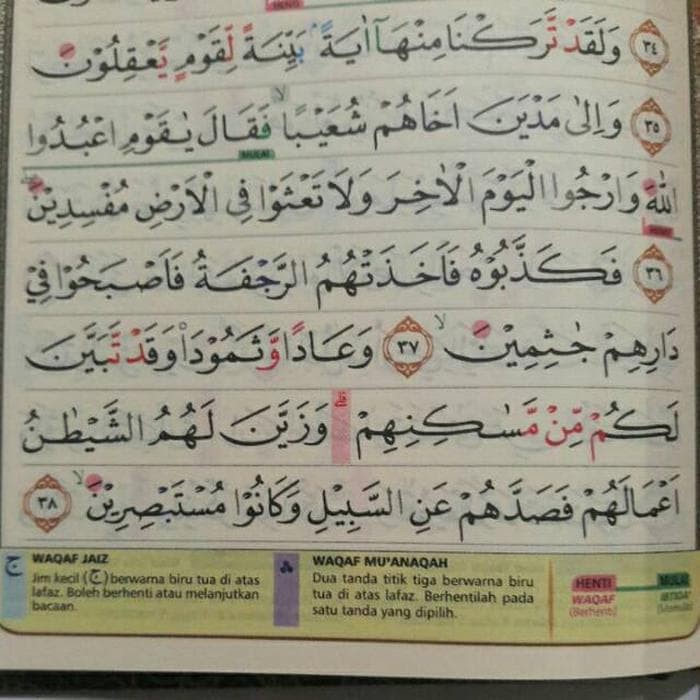 HENTI
وَلَقَدْ تَّرَكْنَا مِنْهَآ اٰيَةً ۢ بَيِّنَةً لِّقَوْمٍ يَّعْقِلُوْنَ ٣٤
وَاِلٰى مَدْيَنَ اَخَاهُمْ شُعَيْبًاۙ فَقَالَ يٰقَوْمِ اعْبُدُوا ٣٥
MULAI
اللّٰهَ وَارْجُوا الْيَوْمَ الْاٰخِرَ وَلَا تَعْثَوْا فِى الْاَرْضِ مُفْسِدِيْنَ
فَكَذَّبُوْهُ فَاَخَذَتْهُمُ الرَّجْفَةُ فَاَصْبَحُوْا فِيْ ٣٦
دَارِهِمْ جٰثِمِيْنَۙ ٣٧ وَعَادًا وَّثَمُوْدَا۟ وَقَدْ تَّبَيَّنَ
لَكُمْ مِّنْ مَّسٰكِنِهِمْۗ وَزَيَّنَ لَهُمُ الشَّيْطٰنُ
اَعْمَالَهُمْ فَصَدَّهُمْ عَنِ السَّبِيْلِ وَكَانُوْا مُسْتَبْصِرِيْنَۙ ٣٨
ج WAQAF JAIZ
Jim kecil (ج) berwarna biru tua di atas
lafaz. Boleh berhenti atau melanjutkan
bacaan.
WAQAF MU'ANAQAH
Dua tanda titik tiga berwarna biru
tua di atas lafaz. Berhentilah pada
satu tanda yang dipilih.
HENTI MULAI
WAQAF
(Berhenti)